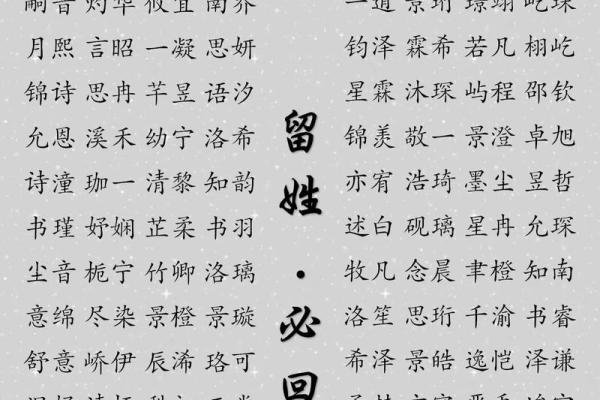 月熙 言昭 一凝 思妍
锦诗 思冉 芊昱 语汐
允恩 溪禾 幼宁 洛希
诗潼 珈一 清黎 知韵
书瑾 妤娴 芷柔 书羽
尘音 栀宁 竹卿 洛璃
意绵 尽染 景橙 景璇
舒意 峤伊 辰浠 珞可
留姓·必回
一道 景珩 璟翊 屹琛
钧泽 霖希 若凡 栩屹
星霖 沐琛 屿程 邵钦
锦羡 敬一 景澄 卓旭
亦宥 浩琦 墨尘 昱哲
述白 砚璃 星冉 允琛
牧凡 念晨 聿橙 知南
洛笙 思珩 千渝 书睿
希泽 景皓 逸恺 泽谦